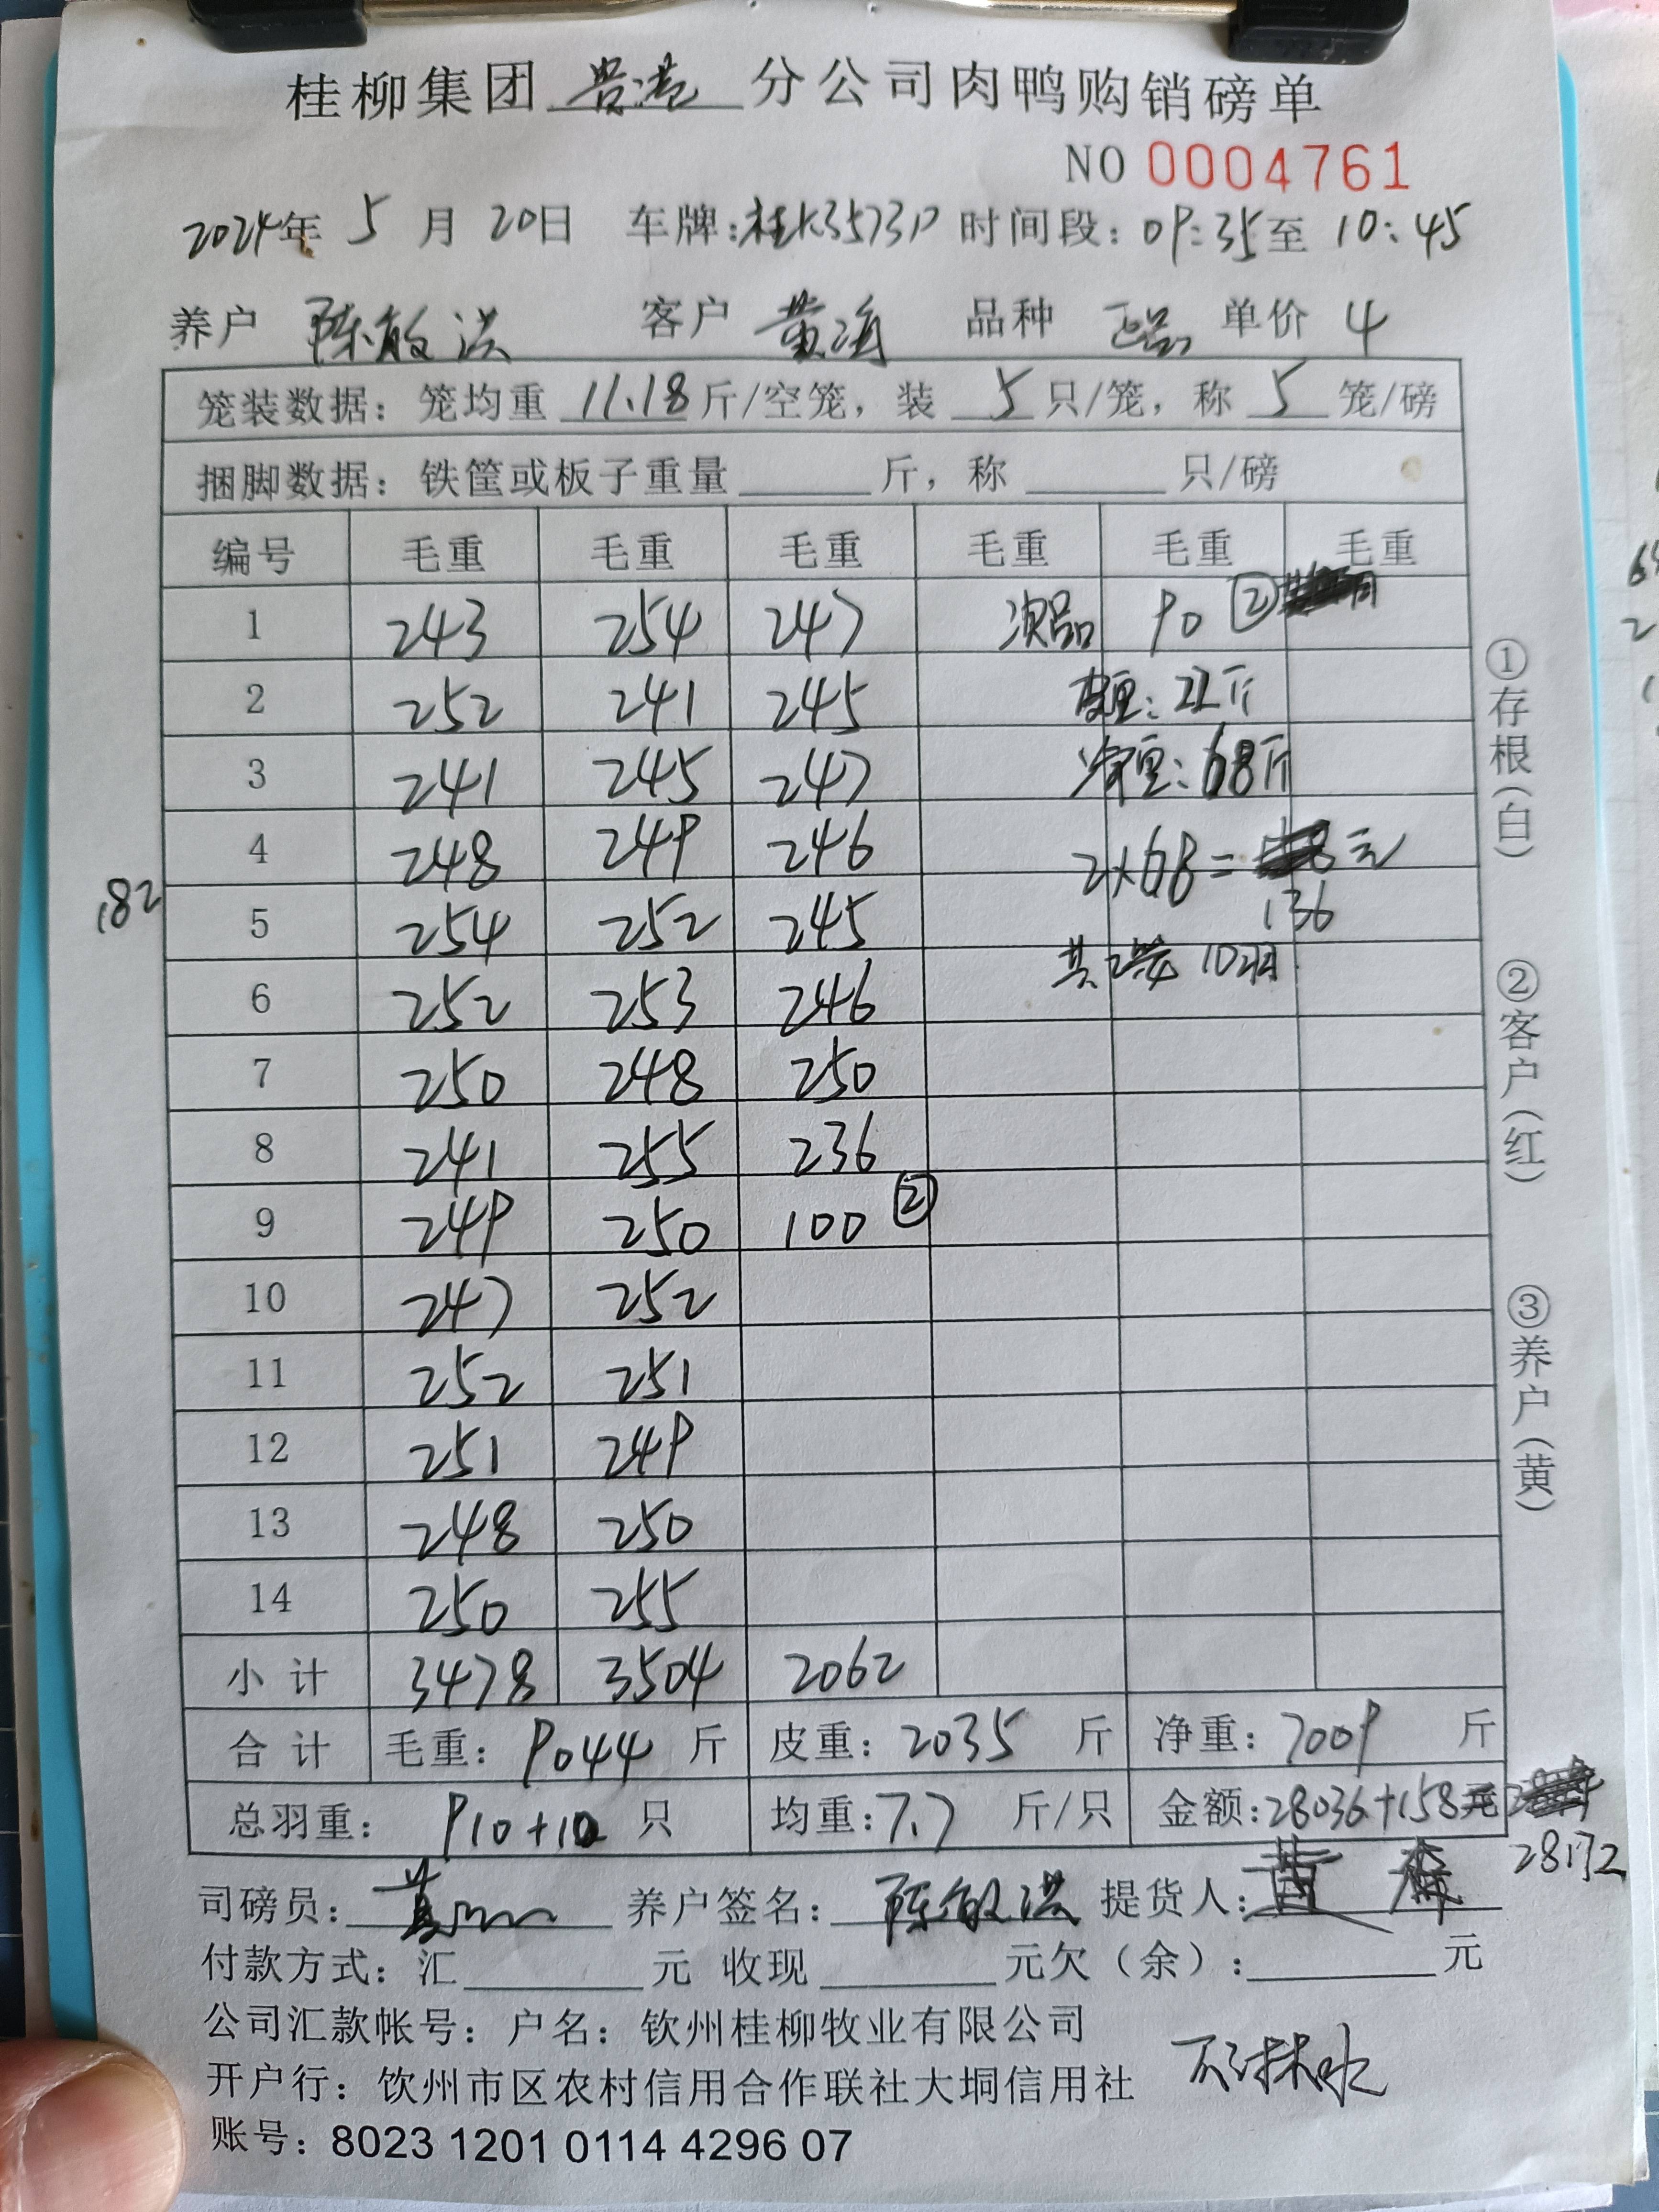 桂柳集团 贵港 分公司肉鸭购销磅单
NO 0004761
2024年 5 月 20日 车牌:桂K3573P 时间段: 09:35至 10:45
养户 陈敏洪 客户 黄海 品种 正品 单价 4
笼装数据: 笼均重 11.18 斤/空笼, 装 5 只/笼, 称 5 笼/磅
捆脚数据: 铁筐或板子重量 斤, 称 只/磅
编号 毛重 毛重 毛重 毛重 毛重 毛重
1 243 254 247 次品 90 ②
2 252 241 245 皮重: 22斤
3 241 245 247 净重: 68斤
4 248 249 246 2×68= 元
182
5 254 252 245 136
6 252 253 246 共2笼 10羽
7 250 248 250
8 241 255 236
9 249 250 100 ②
10 247 252
11 252 251
12 251 249
13 248 250
14 250 255
小计 3478 3504 2062
合计 毛重: 9044 斤 皮重: 2035 斤 净重: 7009 斤
总羽重: 910+10 只 均重: 7.7 斤/只 金额: 28036+158元
28172
司磅员: 养户签名: 陈敏洪 提货人: 黄
付款方式: 汇 元 收现 元欠(余): 元
公司汇款帐号: 户名: 钦州桂柳牧业有限公司
开户行: 钦州市区农村信用合作联社大垌信用社
账号: 8023 1201 0114 4296 07
①存根(白)
②客户(红)
③养户(黄)